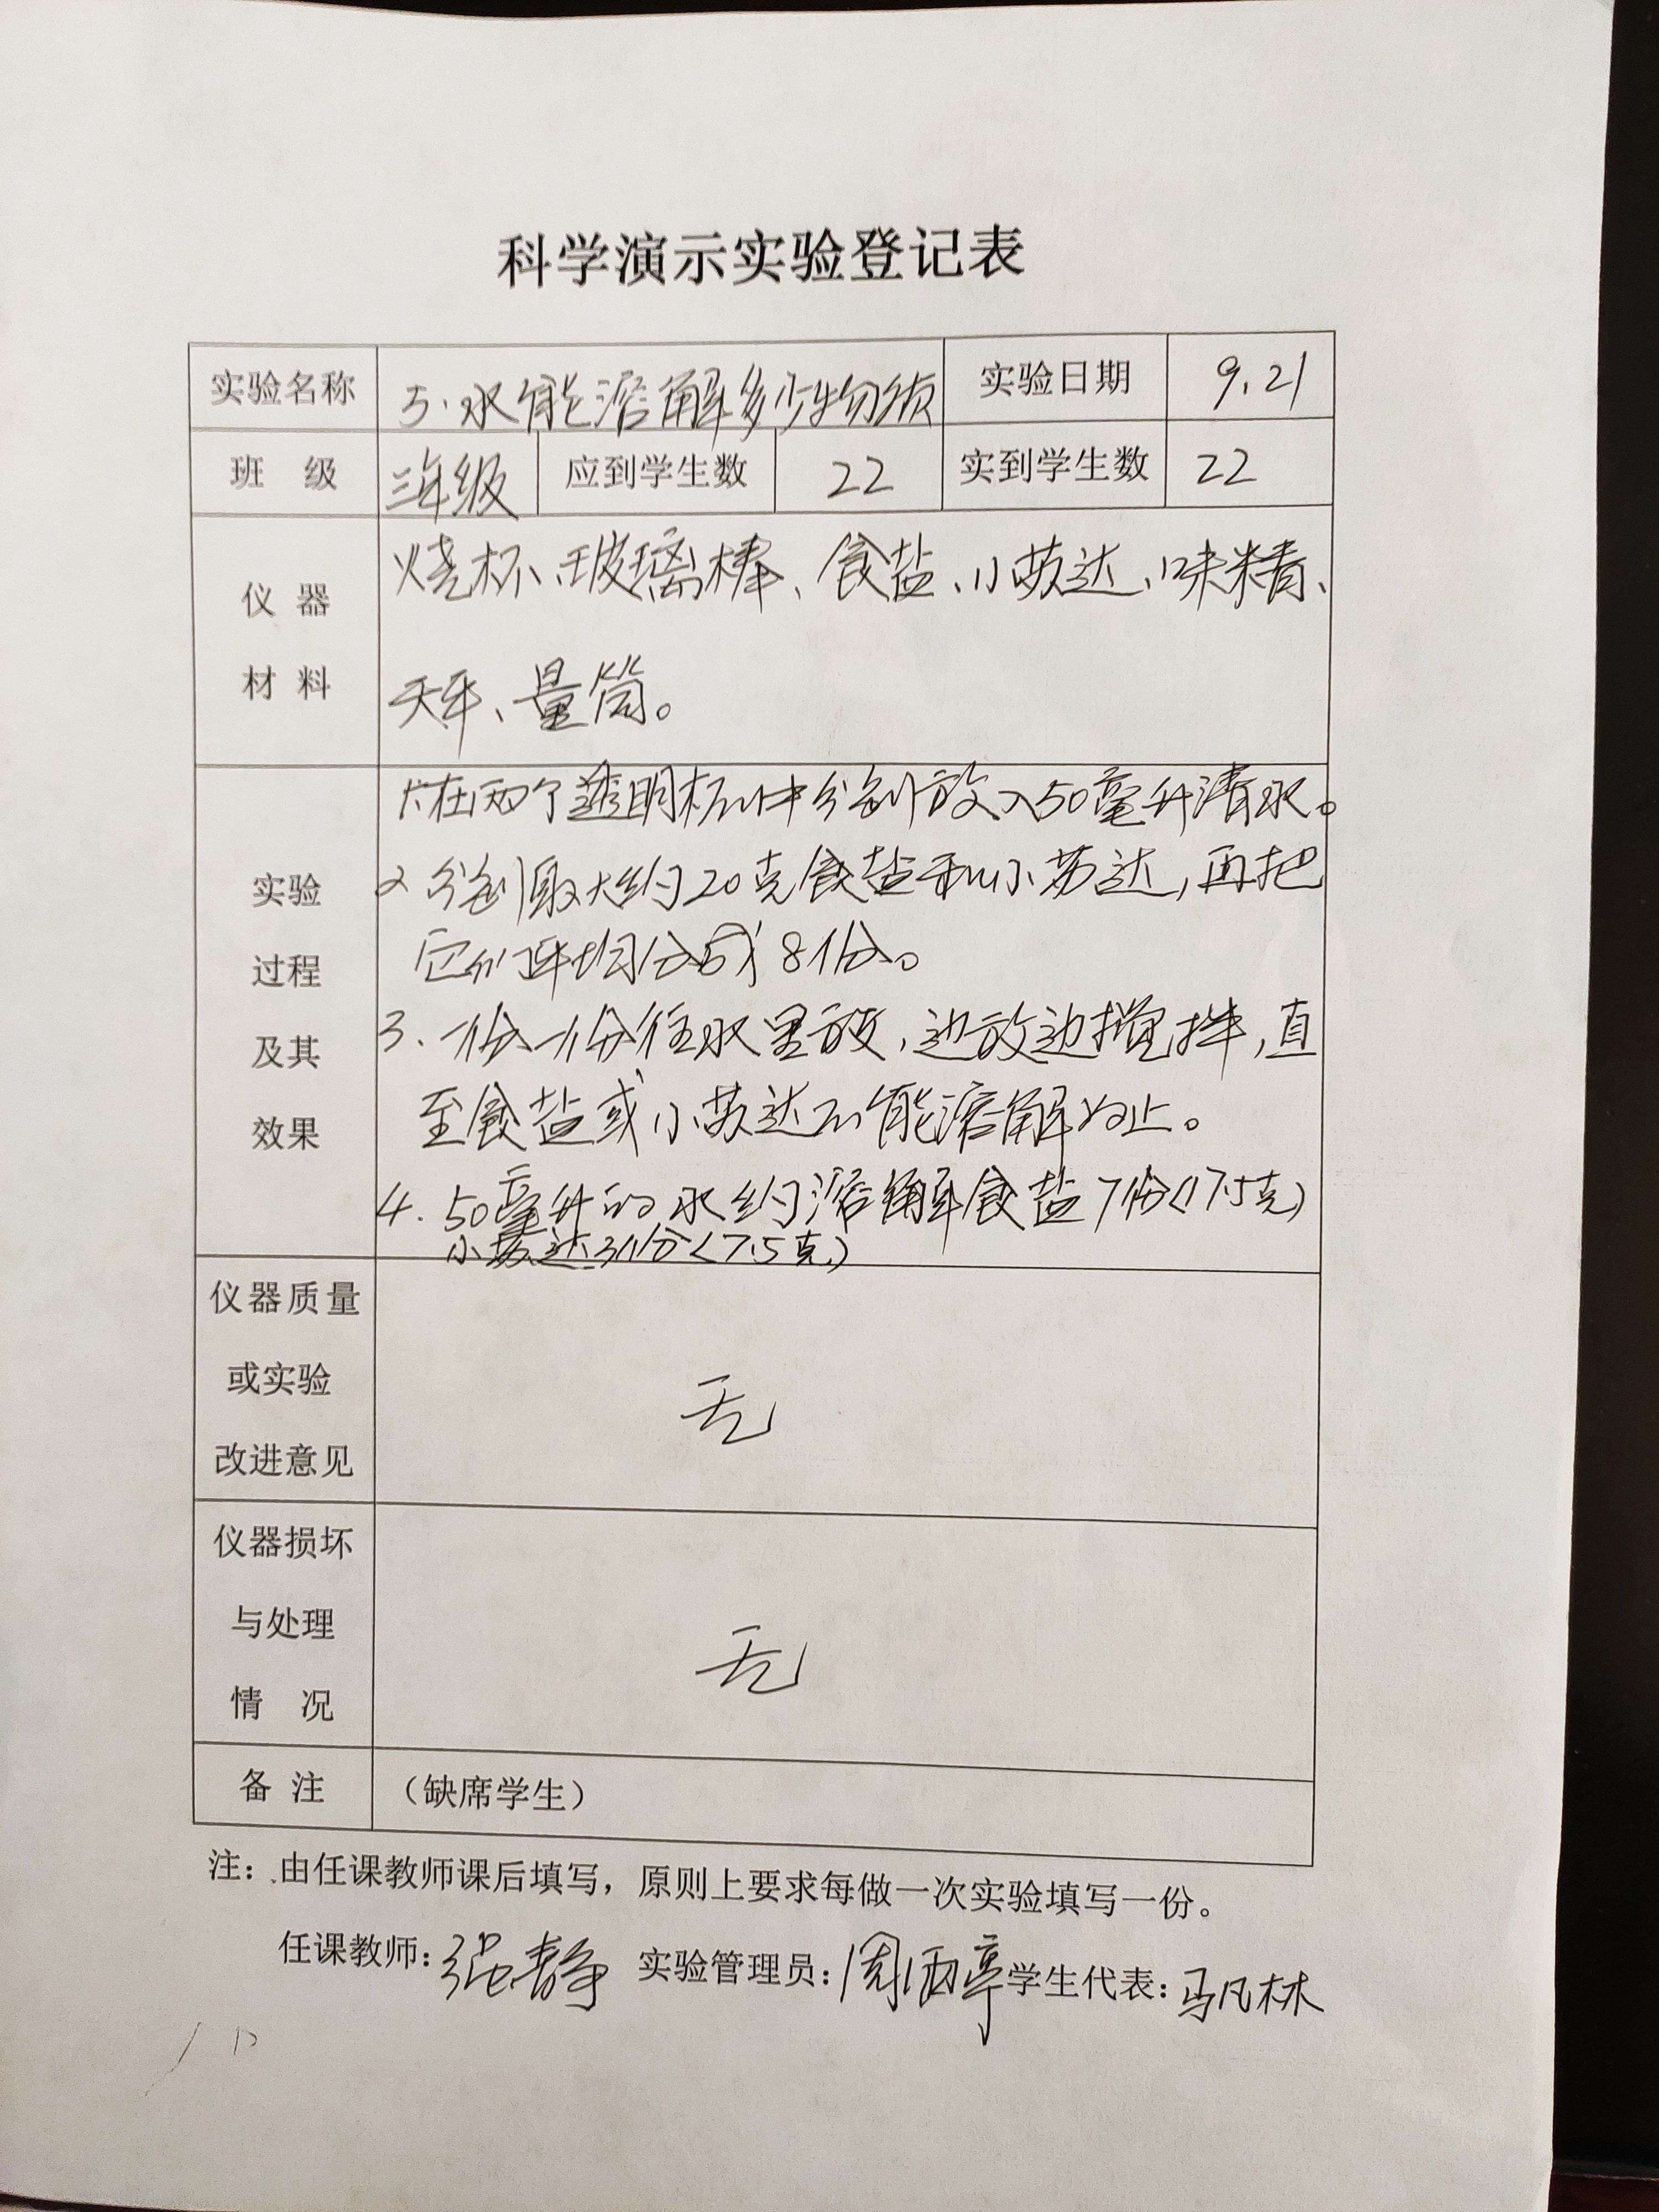 科学演示实验登记表
实验名称 5.水能溶解多少物质 实验日期 9.21
班 级 三年级 应到学生数 22 实到学生数 22
仪 器
材 料
烧杯、玻璃棒、食盐、小苏达、味精、
天平、量筒。
实验
过程
及其
效果
1.在两个透明杯中分别放入50毫升清水。
2 分别取大约20克食盐和小苏达,再把
它们平均分成8份。
3.一份一份往水里放,边放边搅拌,直
至食盐或小苏达不能溶解为止。
4.50毫升的水约溶解食盐7份(17.5克)
小苏达3份(7.5克)
仪器质量
或实验
改进意见
无
仪器损坏
与处理
情 况
无
备 注 (缺席学生)
注:由任课教师课后填写,原则上要求每做一次实验填写一份。
任课教师:张静 实验管理员:周 亭 学生代表:马凡林